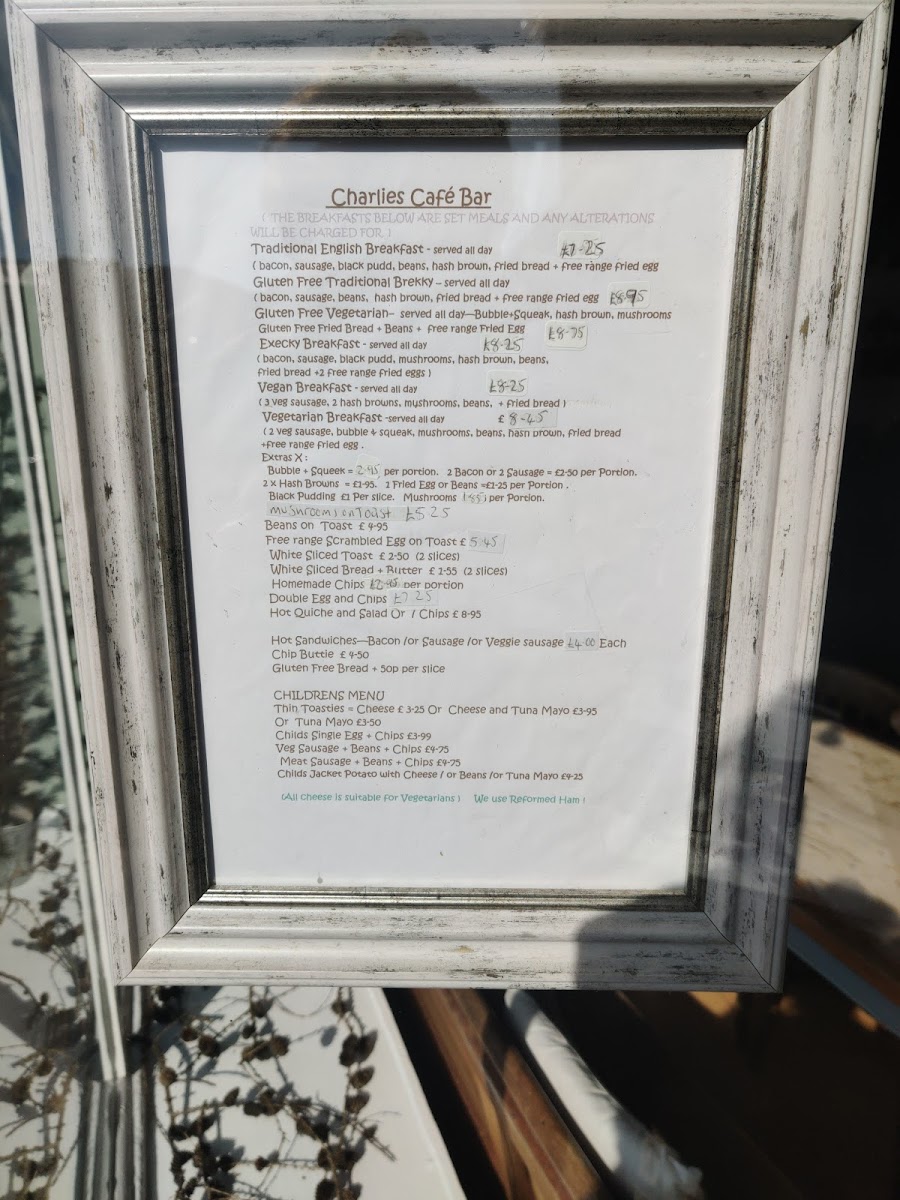 Charlies Café Bar
( THE BREAKFASTS BELOW ARE SET MEALS AND ANY ALTERATIONS
WILL BE CHARGED FOR )
Traditional English Breakfast - served all day £7-25
( bacon, sausage, black pudd, beans, hash brown, fried bread + free range fried egg
Gluten Free Traditional Brekky – served all day
( bacon, sausage, beans, hash brown, fried bread + free range fried egg £8-95
Gluten Free Vegetarian– served all day—Bubble+Squeak, hash brown, mushrooms
Gluten Free Fried Bread + Beans + free range Fried Egg £8-75
Execky Breakfast - served all day £8-25
( bacon, sausage, black pudd, mushrooms, hash brown, beans,
fried bread +2 free range fried eggs )
Vegan Breakfast - served all day £8-25
( 3 veg sausage, 2 hash browns, mushrooms, beans, + fried bread )
Vegetarian Breakfast -served all day £ 8-45
( 2 veg sausage, bubble + squeak, mushrooms, beans, hash brown, fried bread
+free range fried egg .
Extras X :
Bubble + Squeek = 2-95 per portion. 2 Bacon or 2 Sausage = £2-50 per Portion.
2 x Hash Browns = £1-95. 1 Fried Egg or Beans =£1-25 per Portion .
Black Pudding £1 Per slice. Mushrooms per Portion.
mushrooms on Toast £5 25
Beans on Toast £ 4-95
Free range Scrambled Egg on Toast £ 5.45
White Sliced Toast £ 2-50 (2 slices)
White Sliced Bread + Butter £ 1-55 (2 slices)
Homemade Chips £2-95 per portion
Double Egg and Chips £7.25
Hot Quiche and Salad Or / Chips £ 8-95
Hot Sandwiches—Bacon /or Sausage /or Veggie sausage £4-00 Each
Chip Buttie £ 4-50
Gluten Free Bread + 50p per slice
CHILDRENS MENU
Thin Toasties = Cheese £ 3-25 Or Cheese and Tuna Mayo £3-95
Or Tuna Mayo £3-50
Childs Single Egg + Chips £3-99
Veg Sausage + Beans + Chips £4-75
Meat Sausage + Beans + Chips £4-75
Childs Jacket Potato with Cheese / or Beans /or Tuna Mayo £4-25
(All cheese is suitable for Vegetarians ) We use Reformed Ham !